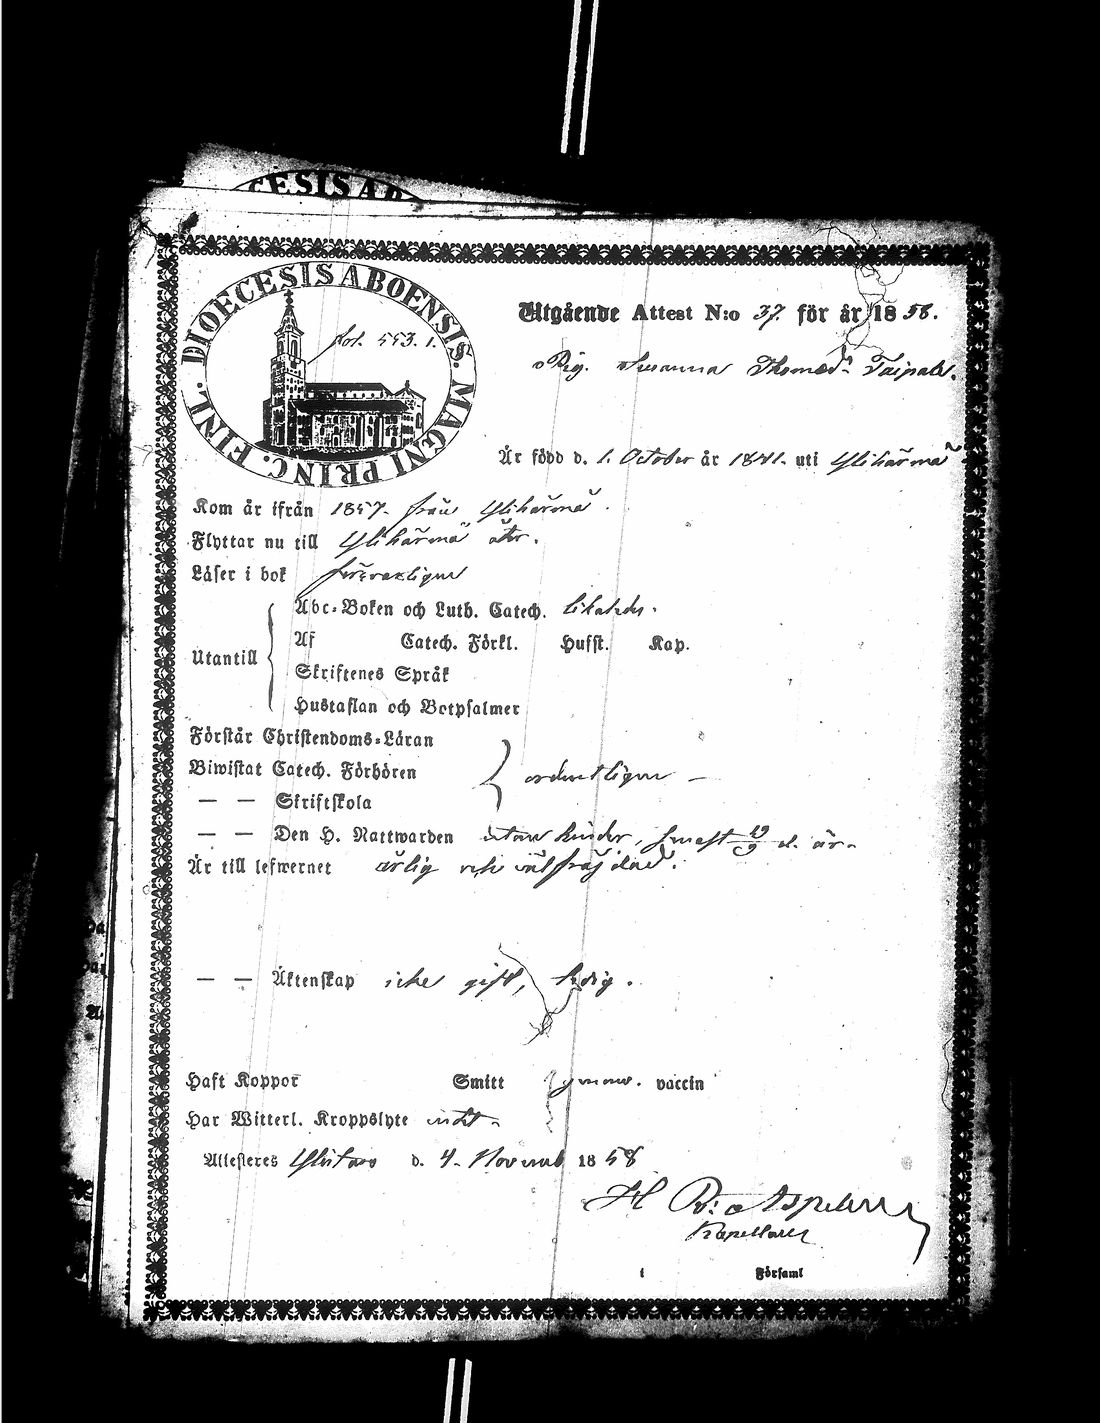 DIOECESIS ABOENSIS. MAGNI PRINC. FINL.
fol. 553. 1.
Utgående Attest N:o 37. för år 1858.
Pig. Susanna Thomasd:r Taipale.
Är född d. 1. October år 1841. uti Ylihärmä
Kom år ifrån 1857. från Ylihärmä.
Flyttar nu till Ylihärmä åter.
Läser i bok försvarligen
Utantill
Abc-Boken och Luth. Catech. likaledes.
Af Catech. Förkl. Husst. Kap.
Skriftenes Språk
Hustaflan och Botpsalmer
Förstår Christendoms-Läran
Biwistat Catech. Förhören ordentligen —
— — Skriftskola
— — Den H. Nattwarden utan hinder, senast 19/9 d. år.
Är till lefwernet ärlig och välfräjdad.
— — Äktenskap icke gift, ledig.
Haft Koppor Smitt genom. vaccin
Har Witterl. Kroppslyte intet
Attesteras Ylistaro d. 4. Novemb 1858
Kapellan
i Församl